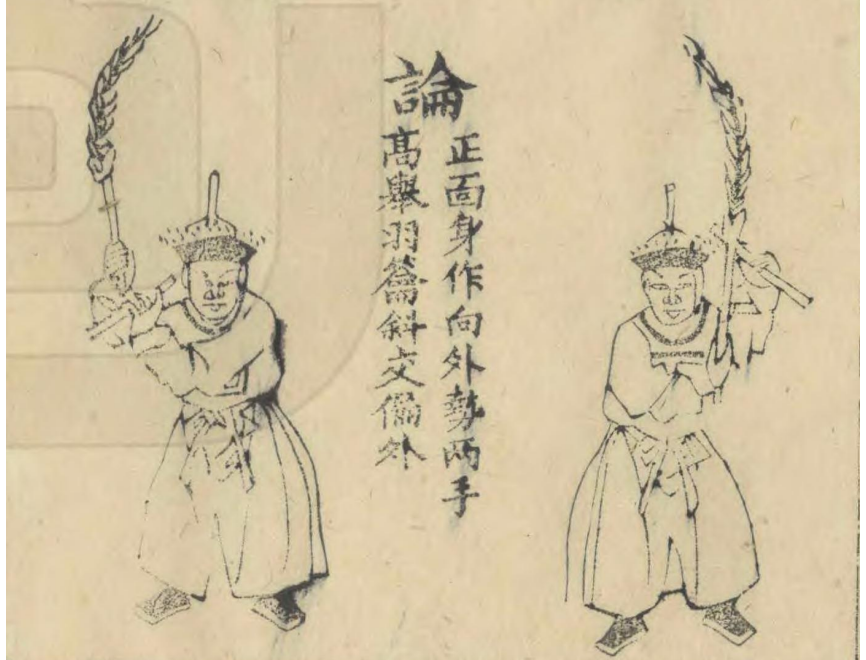 論
正面身作向外勢兩手
高舉羽籥斜交偏外